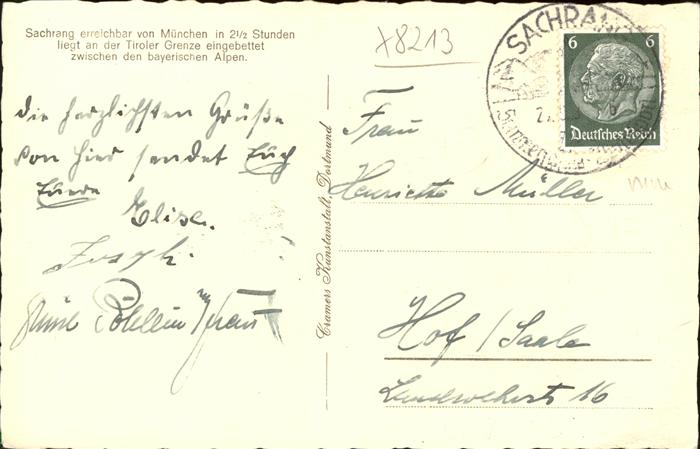 Sachrang erreichbar von München in 2½ Stunden
liegt an der Tiroler Grenze eingebettet
zwischen den bayerischen Alpen.
+8213
SACHRANG
6 6
Deutsches Reich
die herzlichsten Grüße
von hier sendet Euch
Euere
Elise.
Joseph.
Frau
Henriette Müller
Hof / Saale
Landwehrstr 16
Cramers Kunstanstalt, Dortmund